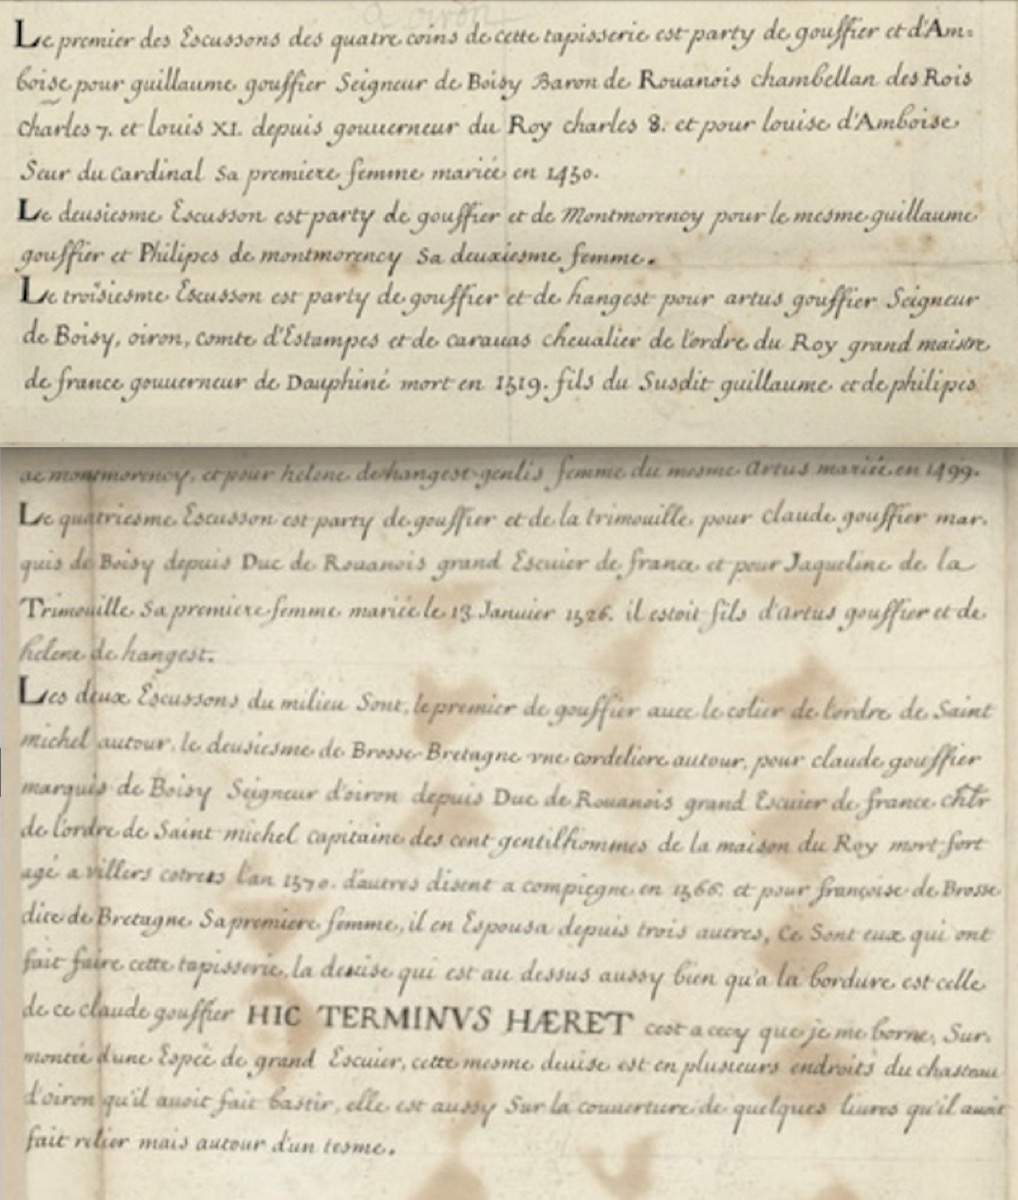 Le premier des Escussons des quatre coins de cette tapisserie est party de gouffier et d'Am=
boise pour guillaume gouffier Seigneur de Boisy Baron de Rouanois chambellan des Rois
Charles 7. et louis XI. depuis gouuerneur du Roy charles 8. et pour louise d'Amboise
Seur du Cardinal Sa premiere femme mariée en 1450.
Le deusiesme Escusson est party de gouffier et de Montmorency pour le mesme guillaume
gouffier et Philipes de montmorency Sa deuxiesme femme.
Le troisiesme Escusson est party de gouffier et de hangest pour artus gouffier Seigneur
de Boisy, oiron, comte d'Estampes et de carauas cheualier de l'ordre du Roy grand maistre
de france gouuerneur de Dauphiné mort en 1519. fils du Susdit guillaume et de philipes
de montmorency, et pour helene de hangest-genlis femme du mesme Artus mariée en 1499.
Le quatriesme Escusson est party de gouffier et de la trimouille, pour claude gouffier mar.
quis de Boisy depuis Duc de Rouanois grand Escuier de france et pour Jaqueline de la
Trimouille Sa premiere femme mariée le 13 Januier 1526. il estoit fils d'artus gouffier et de
helene de hangest.
Les deux Escussons du milieu Sont, le premier de gouffier auec le colier de l'ordre de Saint
michel autour, le deusiesme de Brosse-Bretagne vne cordeliere autour, pour claude gouffier
marquis de Boisy Seigneur d'oiron depuis Duc de Rouanois grand Escuier de france chlr
de l'ordre de Saint michel capitaine des cent gentilhommes de la maison du Roy mort fort
agé a villers cotrets l'an 1570. d'autres disent a compiegne en 1566. et pour françoise de Brosse
dite de Bretagne Sa premiere femme, il en Espousa depuis trois autres, Ce Sont eux qui ont
fait faire cette tapisserie, la deuise qui est au dessus aussy bien qu'a la bordure est celle
de ce claude gouffier HIC TERMINVS HÆRET cest a cecy que je me borne, Sur.
montée d'une Espée de grand Escuier, cette mesme deuise est en plusieurs endroits du chasteau
d'oiron qu'il auoit fait bastir, elle est aussy Sur la couuerture de quelques liures qu'il auoit
fait relier mais autour d'un tesme.